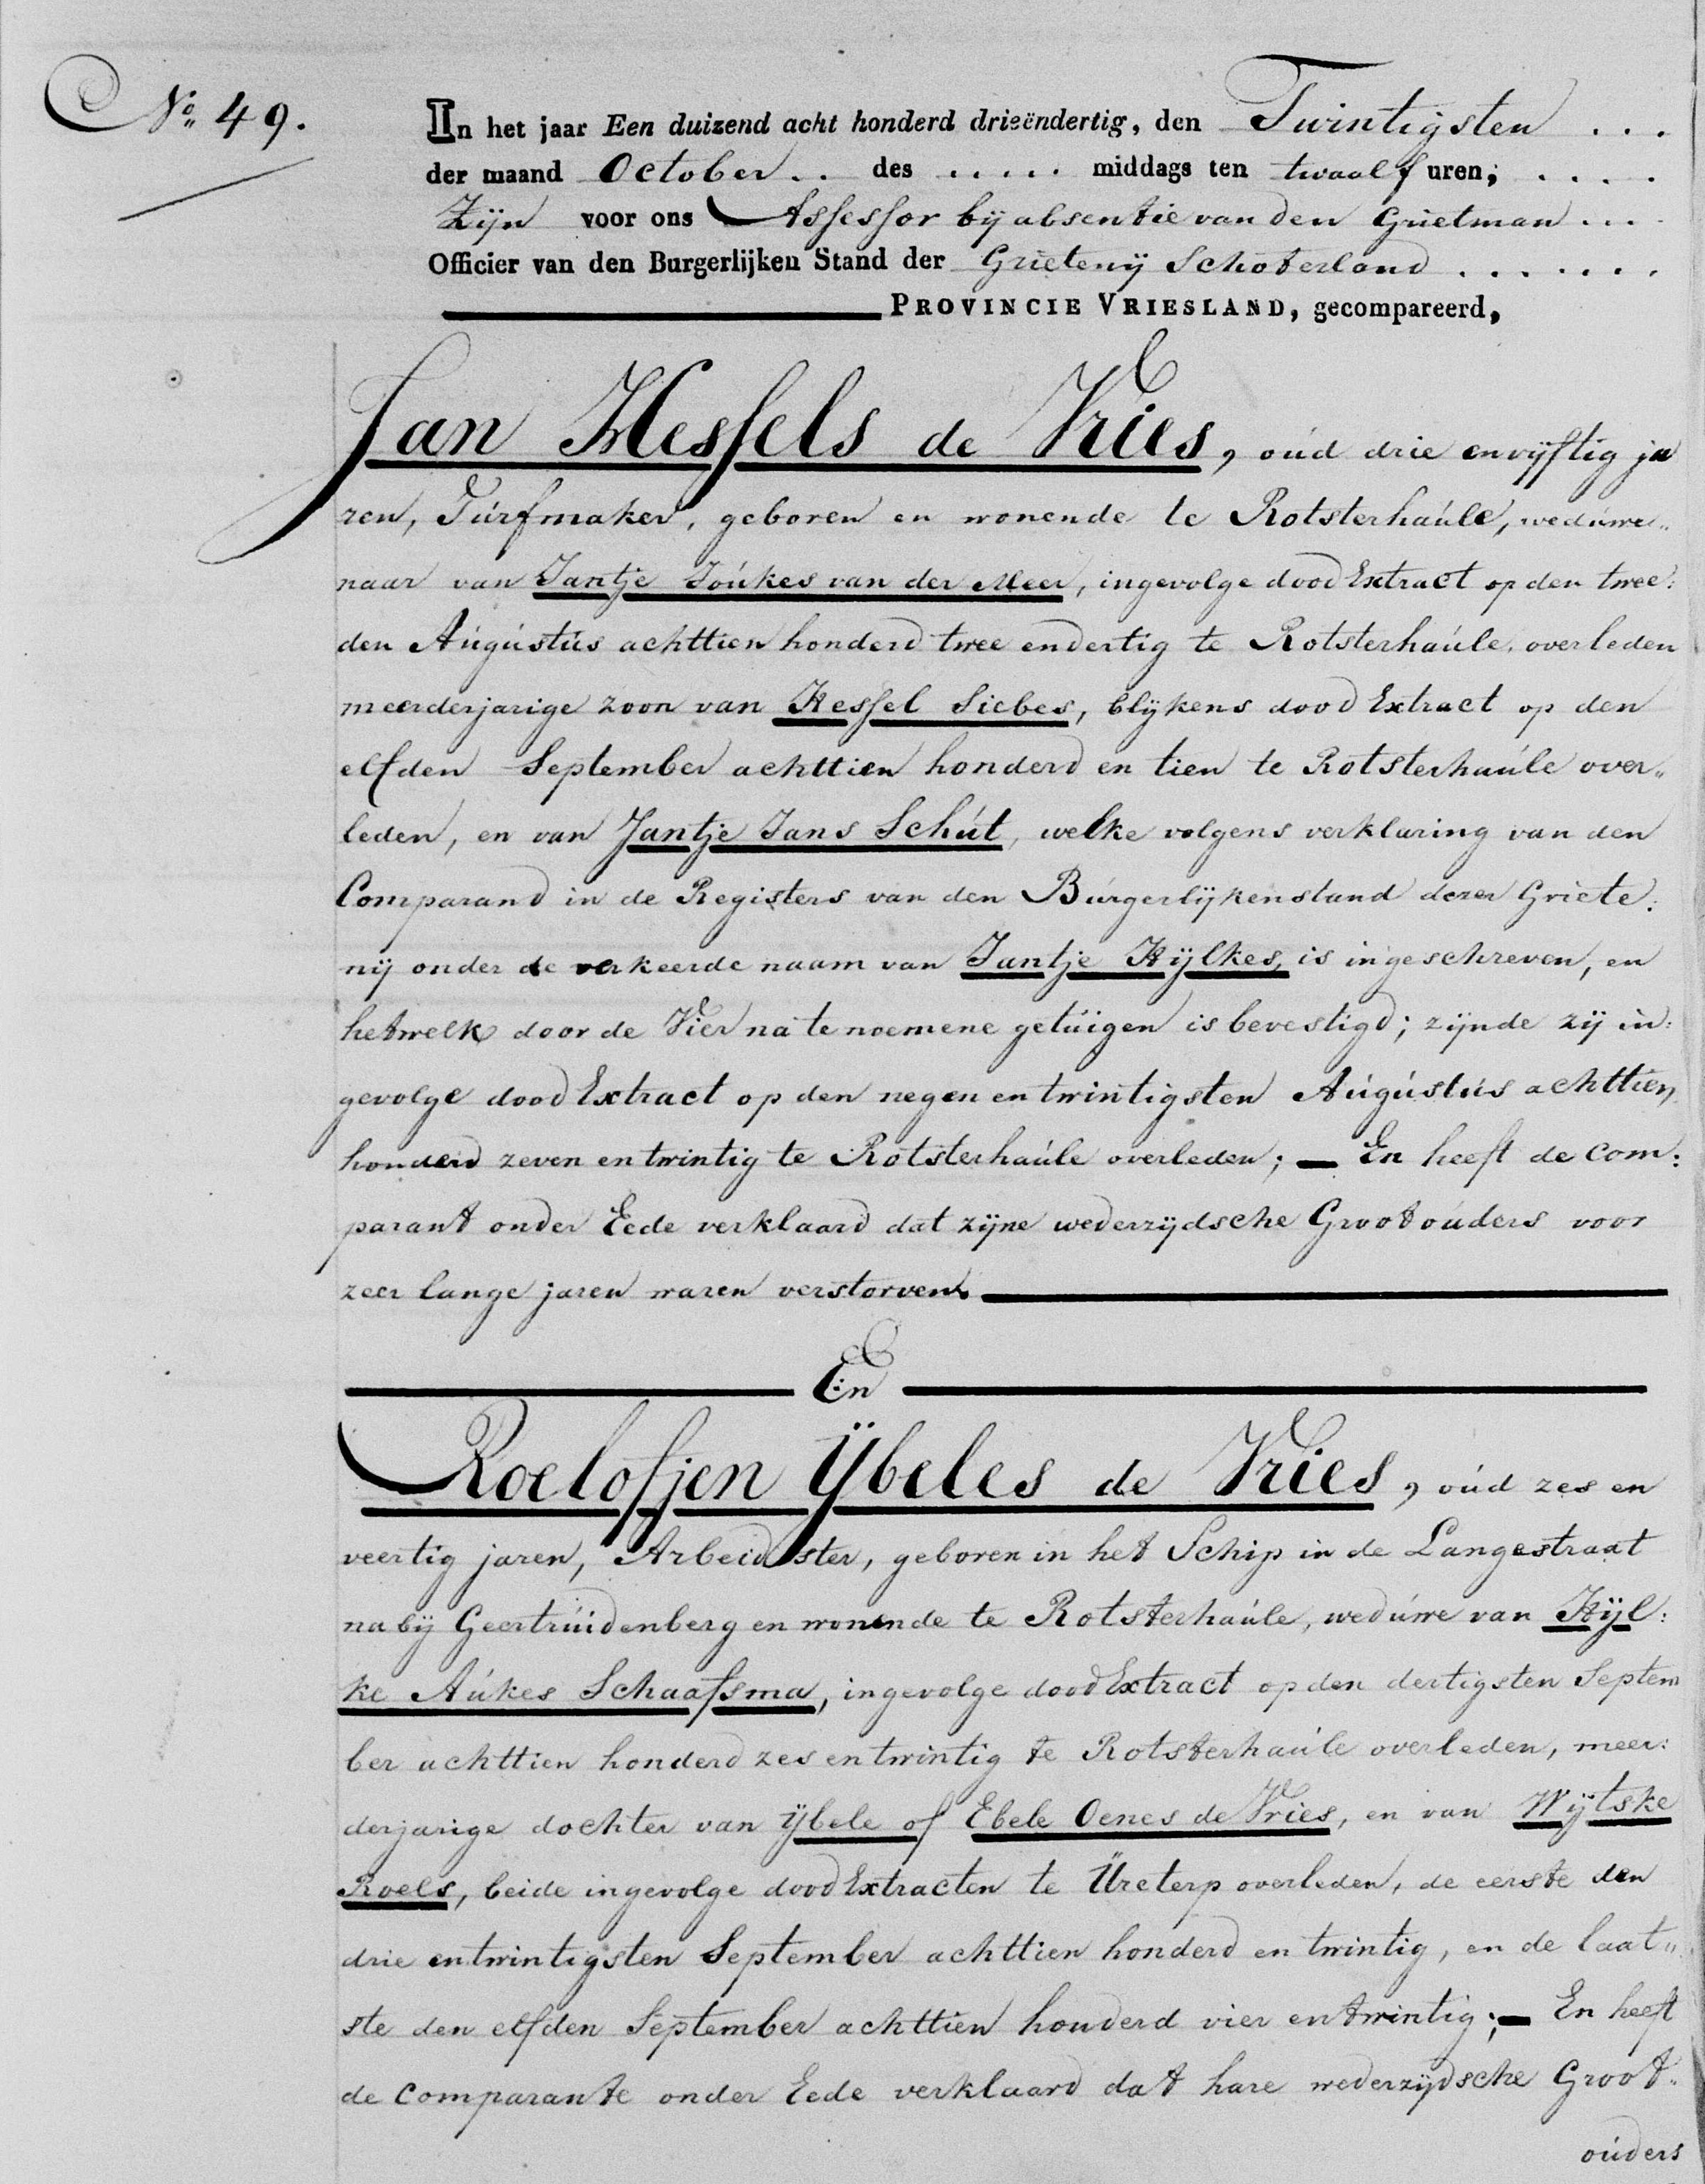 No. 49.
In het jaar Een duizend acht honderd drieëndertig, den Twintigsten ...
der maand October .. des ..... middags ten twaalf uren; ....
Zijn voor ons Assessor bij absentie van den Grietman ...
Officier van den Burgerlijken Stand der Grietenij Schoterland .......
PROVINCIE VRIESLAND, gecompareerd,
Jan Hessels de Vries, oud drie envijftig ja
ren, Turfmaker, geboren en wonende te Rotsterhaule, weduwe„
naar van Jantje Joukes van der Meer, ingevolge dood Extract op den twee:
den Augustus achttien honderd twee endertig te Rotsterhaule, overleden
meerderjarige zoon van Hessel Siebes, blijkens dood Extract op den
elfden September achttien honderd en tien te Rotsterhaule over„
leden, en van Jantje Jans Schut, welke volgens verklaring van den
Comparand in de Registers van den Burgerlijkenstand dezer Griete:
nij onder de verkeerde naam van Jantje Hylkes, is ingeschreven, en
hetwelk door de Vier na te noemene getuigen is bevestigd; zijnde zij in:
gevolge dood Extract op den negen en twintigsten Augustus achttien
honderd zeven entwintig te Rotsterhaule overleden; — En heeft de Com:
parant onder Eede verklaard dat zijne wederzijdsche Grootouders voor
zeer lange jaren waren verstorven.
En
Roelofjen Ybeles de Vries, oud zes en
veertig jaren, Arbeidster, geboren in het Schip in de Langestraat
nabij Geertruidenberg en wonende te Rotsterhaule, weduwe van Hyl:
ke Aukes Schaafsma, ingevolge dood Extract op den dertigsten Septem
ber achttien honderd zes entwintig te Rotsterhaule overleden, meer:
derjarige dochter van Ybele of Ebele Oenes de Vries, en van Wytske
Roels, beide ingevolge dood Extracten te Ureterp overleden, de eerste den
drie entwintigsten September achttien honderd en twintig, en de laat„
ste den elfden September achttien honderd vier entwintig; — En heeft
de Comparante onder Eede verklaard dat hare wederzijdsche Groot„
ouders